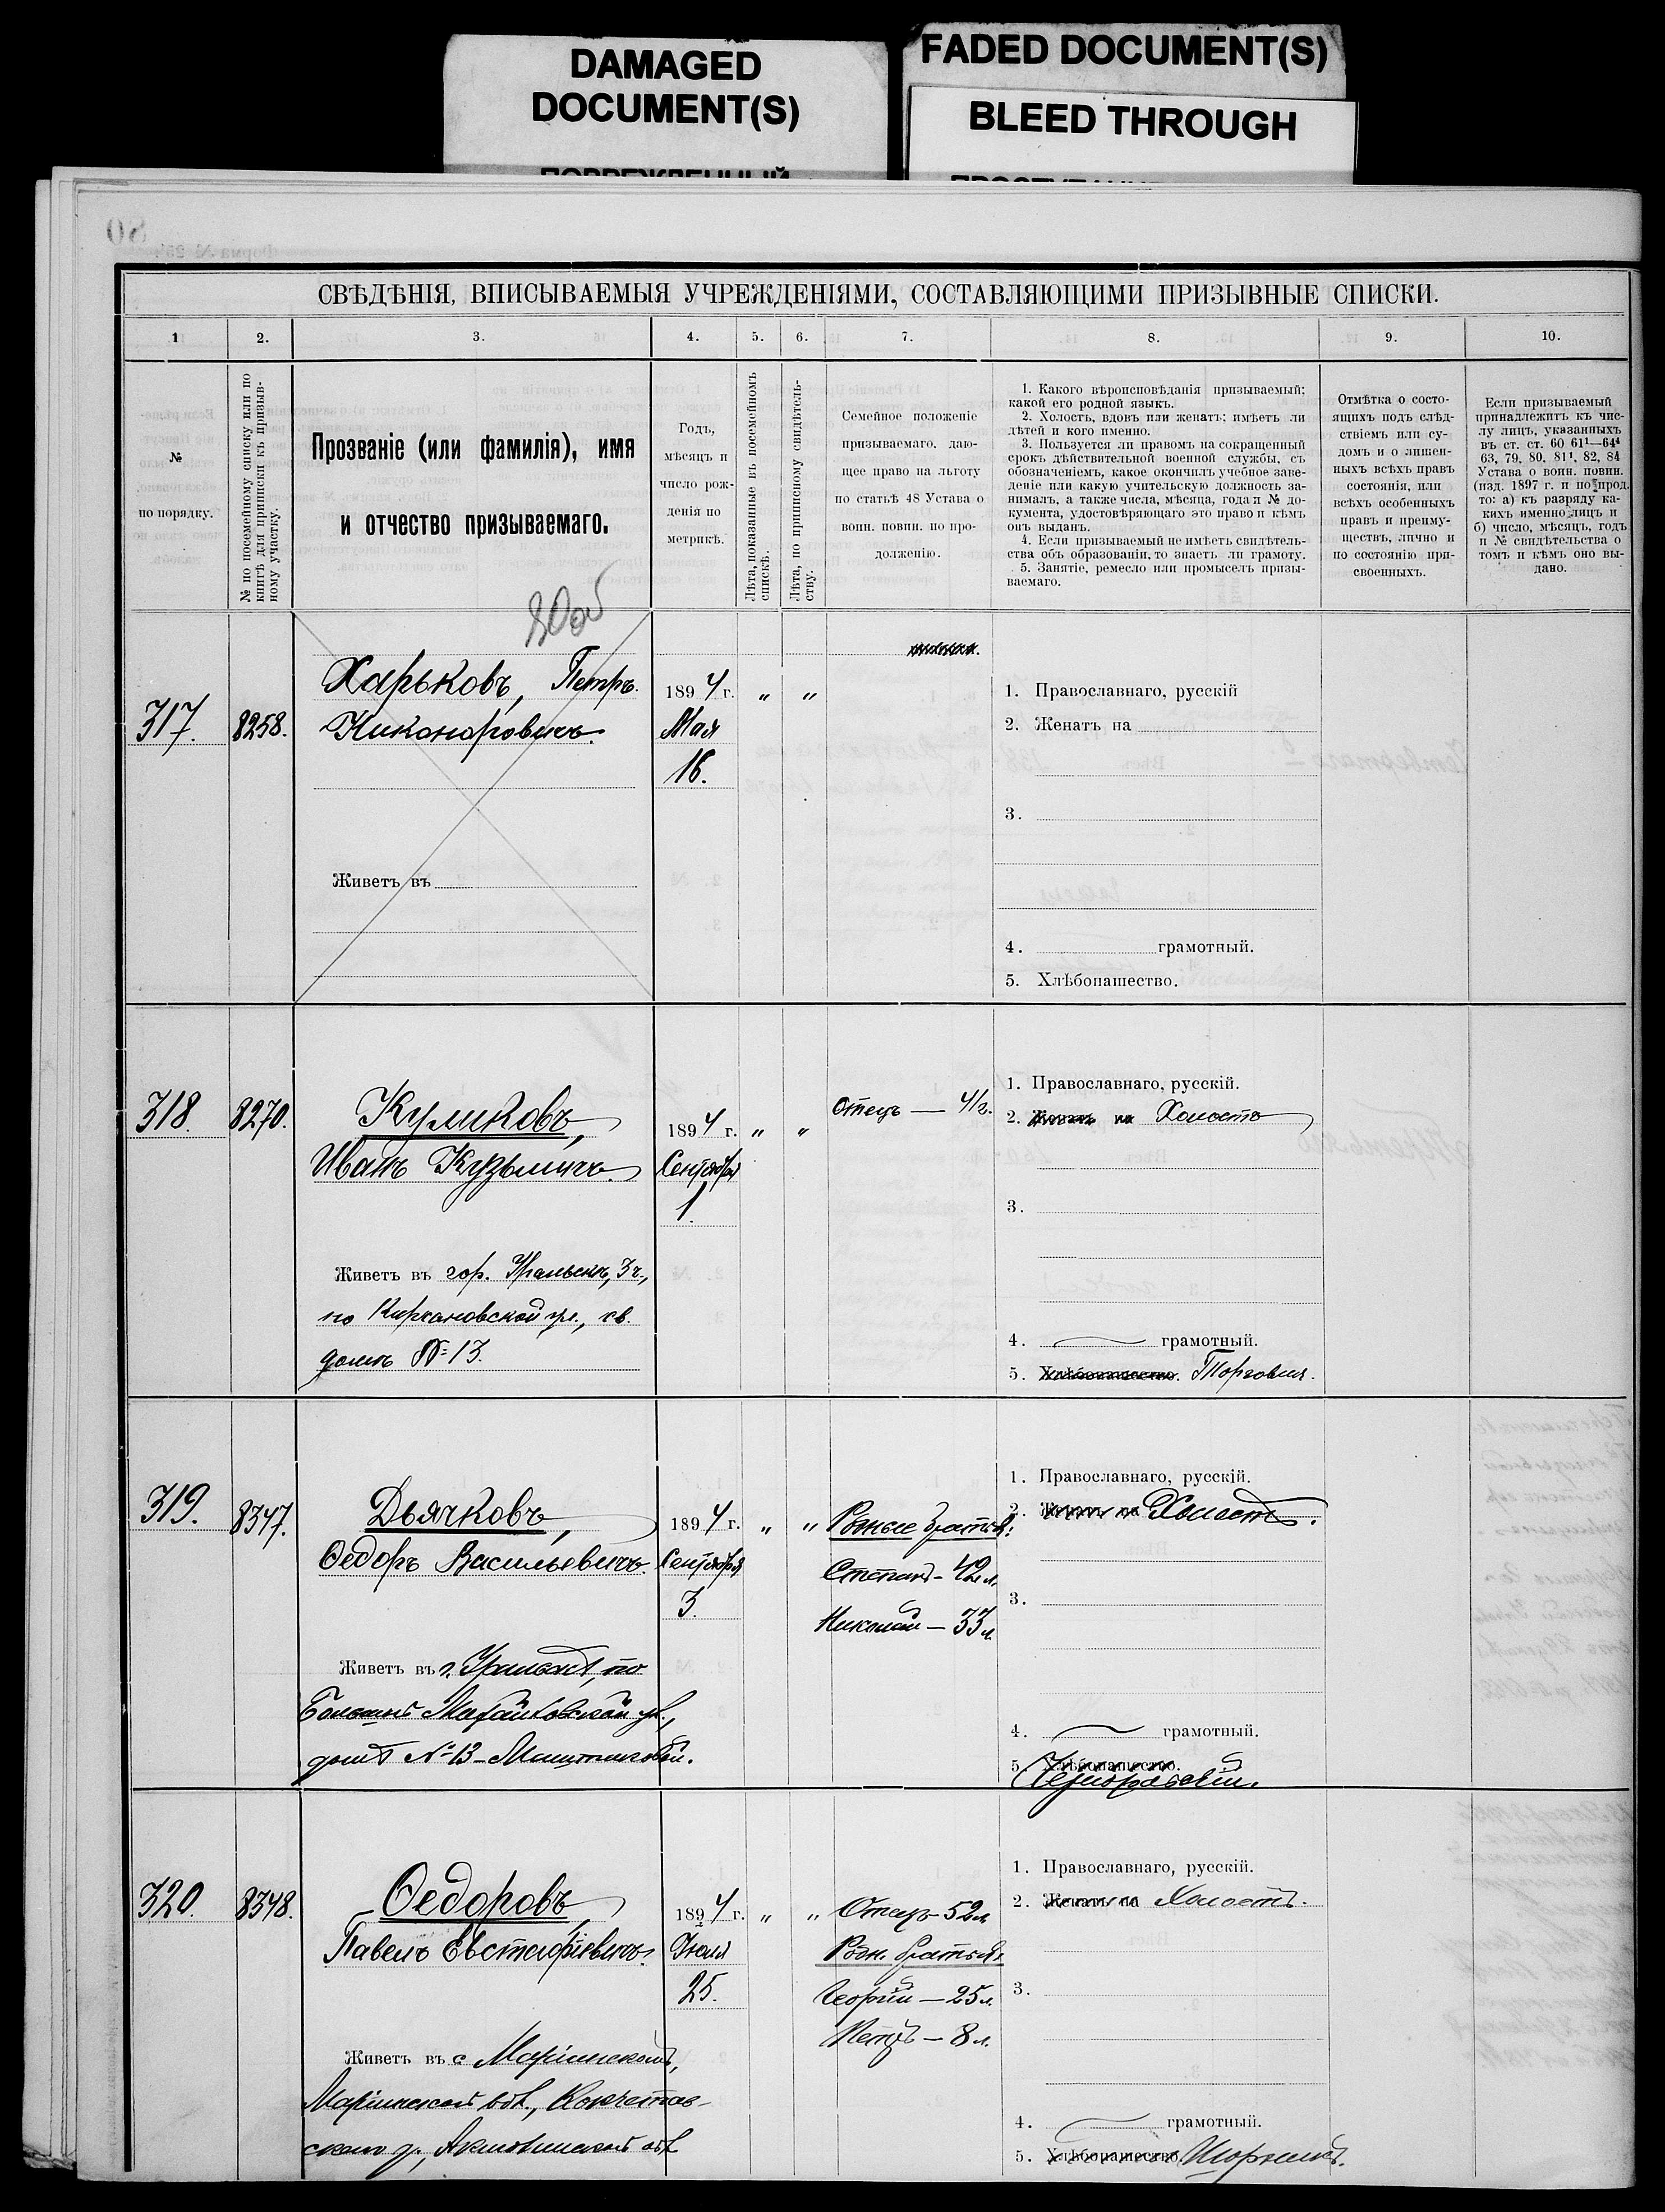 DAMAGED
DOCUMENT(S)
FADED DOCUMENT(S)
BLEED THROUGH
80
СВѢДѢНІЯ, ВПИСЫВАЕМЫЯ УЧРЕЖДЕНІЯМИ, СОСТАВЛЯЮЩИМИ ПРИЗЫВНЫЕ СПИСКИ.
1 2. 3. 4. 5. 6. 7. 8. 9. 10.
№
по порядку.
№ по посемейному списку или по
книгѣ для приписки къ призыв-
ному участку.
Прозваніе (или фамилія), имя
и отчество призываемаго.
Годъ,
мѣсяцъ и
число рож-
денія по
метрикѣ.
Лѣта, показанные въ посемейномъ
спискѣ.
Лѣта, по приписному свидѣтель-
ству.
Семейное положеніе
призываемаго, даю-
щее право на льготу
по статьѣ 48 Устава о
воин. повин. по про-
долженію.
1. Какого вѣроисповѣданія призываемый;
какой его родной языкъ.
2. Холостъ, вдовъ или женатъ; имѣетъ ли
дѣтей и кого именно.
3. Пользуется ли правомъ на сокращенный
срокъ дѣйствительной военной службы, съ
обозначеніемъ, какое окончилъ учебное заве-
деніе или какую учительскую должность за-
нималъ, а также числа, мѣсяца, года и № до-
кумента, удостовѣряющаго это право и кѣмъ
онъ выданъ.
4. Если призываемый не имѣетъ свидѣтель-
ства объ образованіи, то знаетъ ли грамоту.
5. Занятіе, ремесло или промыселъ призы-
ваемаго.
Отмѣтка о состо-
ящихъ подъ слѣд-
ствіемъ или су-
домъ и о лишен-
ныхъ всѣхъ правъ
состоянія, или
всѣхъ особенныхъ
правъ и преиму-
ществъ, лично и
по состоянію при-
своенныхъ.
Если призываемый
принадлежитъ къ чис-
лу лицъ, указанныхъ
въ ст. ст. 60 61¹—64⁴
63, 79, 80, 81¹, 82, 84
Устава о воин. повин.
(изд. 1897 г. и по прод.
то: а) къ разряду ка-
кихъ именно лицъ и
б) число, мѣсяцъ, годъ
и № свидѣтельства о
томъ и кѣмъ оно вы-
дано.
80об
317. 8258.
Харьковъ, Петръ
Никаноровичъ.
Живетъ въ
1894 г. „ „
Мая
16.
1. Православнаго, русскій
2. Женатъ на
3.
4. грамотный.
5. Хлѣбопашество.
318. 8270.
Куликовъ,
Иванъ Кузьмичъ.
Живетъ въ гор. Уральскѣ, 3 ч.,
по Кирсановской ул., св.
домъ № 13.
1894 г. „ „
Сентября
1.
Отецъ — 41 г.
1. Православнаго, русскій.
2. Женатъ на Холостъ
3.
4. грамотный.
5. Хлѣбопашество. Торговля.
319. 8347.
Дьячковъ,
Ѳедоръ Васильевичъ.
Живетъ въ г. Уральскѣ, по
ул.,
домъ № 13
1894 г. „ „
Сентября
3.
Родные братья:
Степанъ - 42 л.
Николай — 33 л.
1. Православнаго, русскій.
2. Женатъ на Холостъ.
3.
4. грамотный.
5. Хлѣбопашество.
Чернорабочій.
320. 8348.
Ѳедоровъ,
Павелъ Евстафіевичъ.
Живетъ въ с Маріинскомъ,
Маріинской вол., Кокчетав-
скаго у., Акмолинской обл
1894 г. „ „
Іюля
25.
Отецъ - 52 л.
Родн. братья:
Георгій — 25 л.
Петръ — 8 л.
1. Православнаго, русскій.
2. Женатъ на Холостъ.
3.
4. грамотный.
5. Хлѣбопашество. Шорникъ.